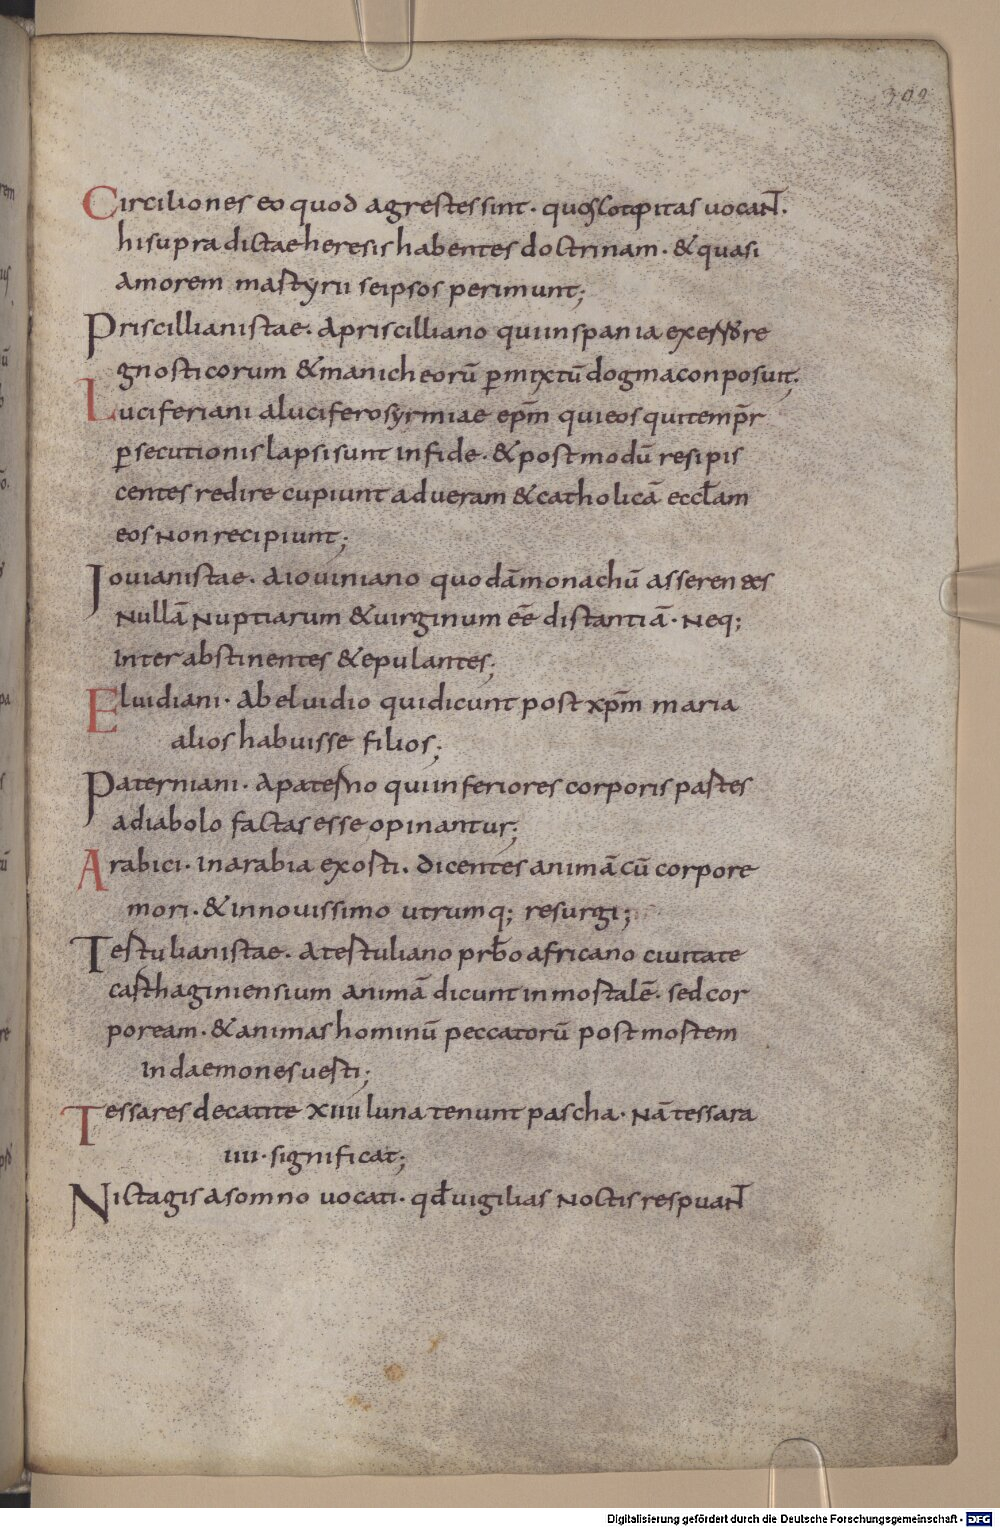 302
Circiliones eo quod agrestes sint. quos scotopitas uocaNT̄.
hi supra dictae heresis habentes doctrinam. & quasi
amorem martyrii se ipsos perimunt;
Priscillianistae. a priscilliano qui in spania ex errore
gnosticorum & manicheorū ꝑmixtū dogma conposuit;
Luciferiani a lucifero syrmiae ep̄m qui eos qui temp̄r
ꝑsecutionis lapsi sunt in fide. & post modū resipis
centes redire cupiunt ad ueram & catholicā eccl̄am
eos non recipiunt;
Iouianistae. a iouiniano quodā monachū asserentes
nullā nuptiarum & uirginum eē distantiā. neq;
inter abstinentes & epulantes;
Eluidiani. ab eluidio qui dicunt post xp̄m maria
alios habuisse filios;
Paterniani. a paterno qui inferiores corporis partes
a diabolo factas esse opinantur;
Arabici. in arabia exorti. dicentes animā cū corpore
mori. & in nouissimo utrumq; resurgi;
Tertulianistae. a tertuliano prb̄o africano ciuitate
carthaginiensium animā dicunt inmortalē. sed cor
poream. & animas hominū peccatorū post mortem
in daemones uerti;
Tessares decatite XIIII luna tenunt pascha. Nā tessara
IIII. significat;
Nictagis a somno uocati. qd̄ uigilias noctis respuaNT̄
Digitalisierung gefördert durch die Deutsche Forschungsgemeinschaft - DFG